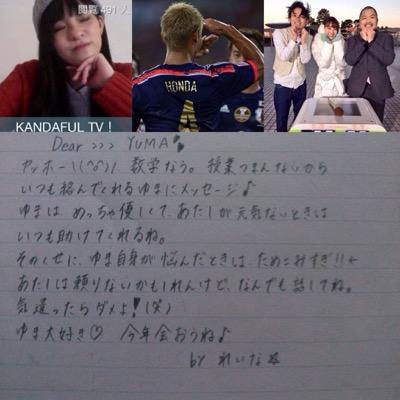 閲覧 491 人
KANDAFUL TV!
HONDA
4
Dear >>> YUMA
ヤッホー\(^o^)/ 数学なう。授業つまんないから
いつも絡んでくれるゆまにメッセージ♪
ゆまは、めっちゃ優しくて、あたしが元気ないときは
いつも助けてくれるね。
そのくせに、ゆま自身が悩んだときは ためこみすぎ!!←
あたしは頼りないかもしれんけど、なんでも話してね。
気遣ったらダメよ!(笑)
ゆま大好き♡ 今年会おうね♪
by れいな☆